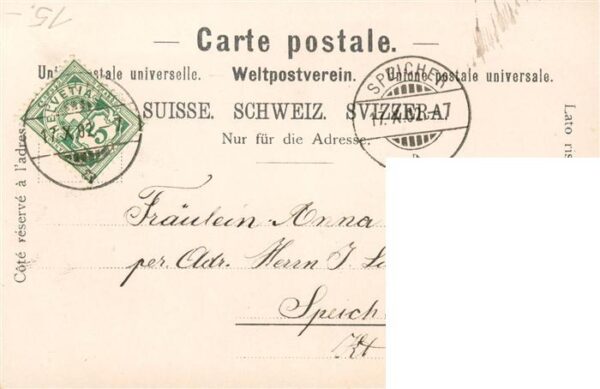 15.-
Carte postale.
Union postale universelle. Weltpostverein. Unione postale universale.
SUISSE. SCHWEIZ. SVIZZERA.
Nur für die Adresse.
Côté réservé à l'adres
Lato ris
HELVETIA
5
17.X.02.-7
SPEICHER
17.X.02.-7
Fräulein Anna
per. Adr. Herrn J.
Speich
Kt